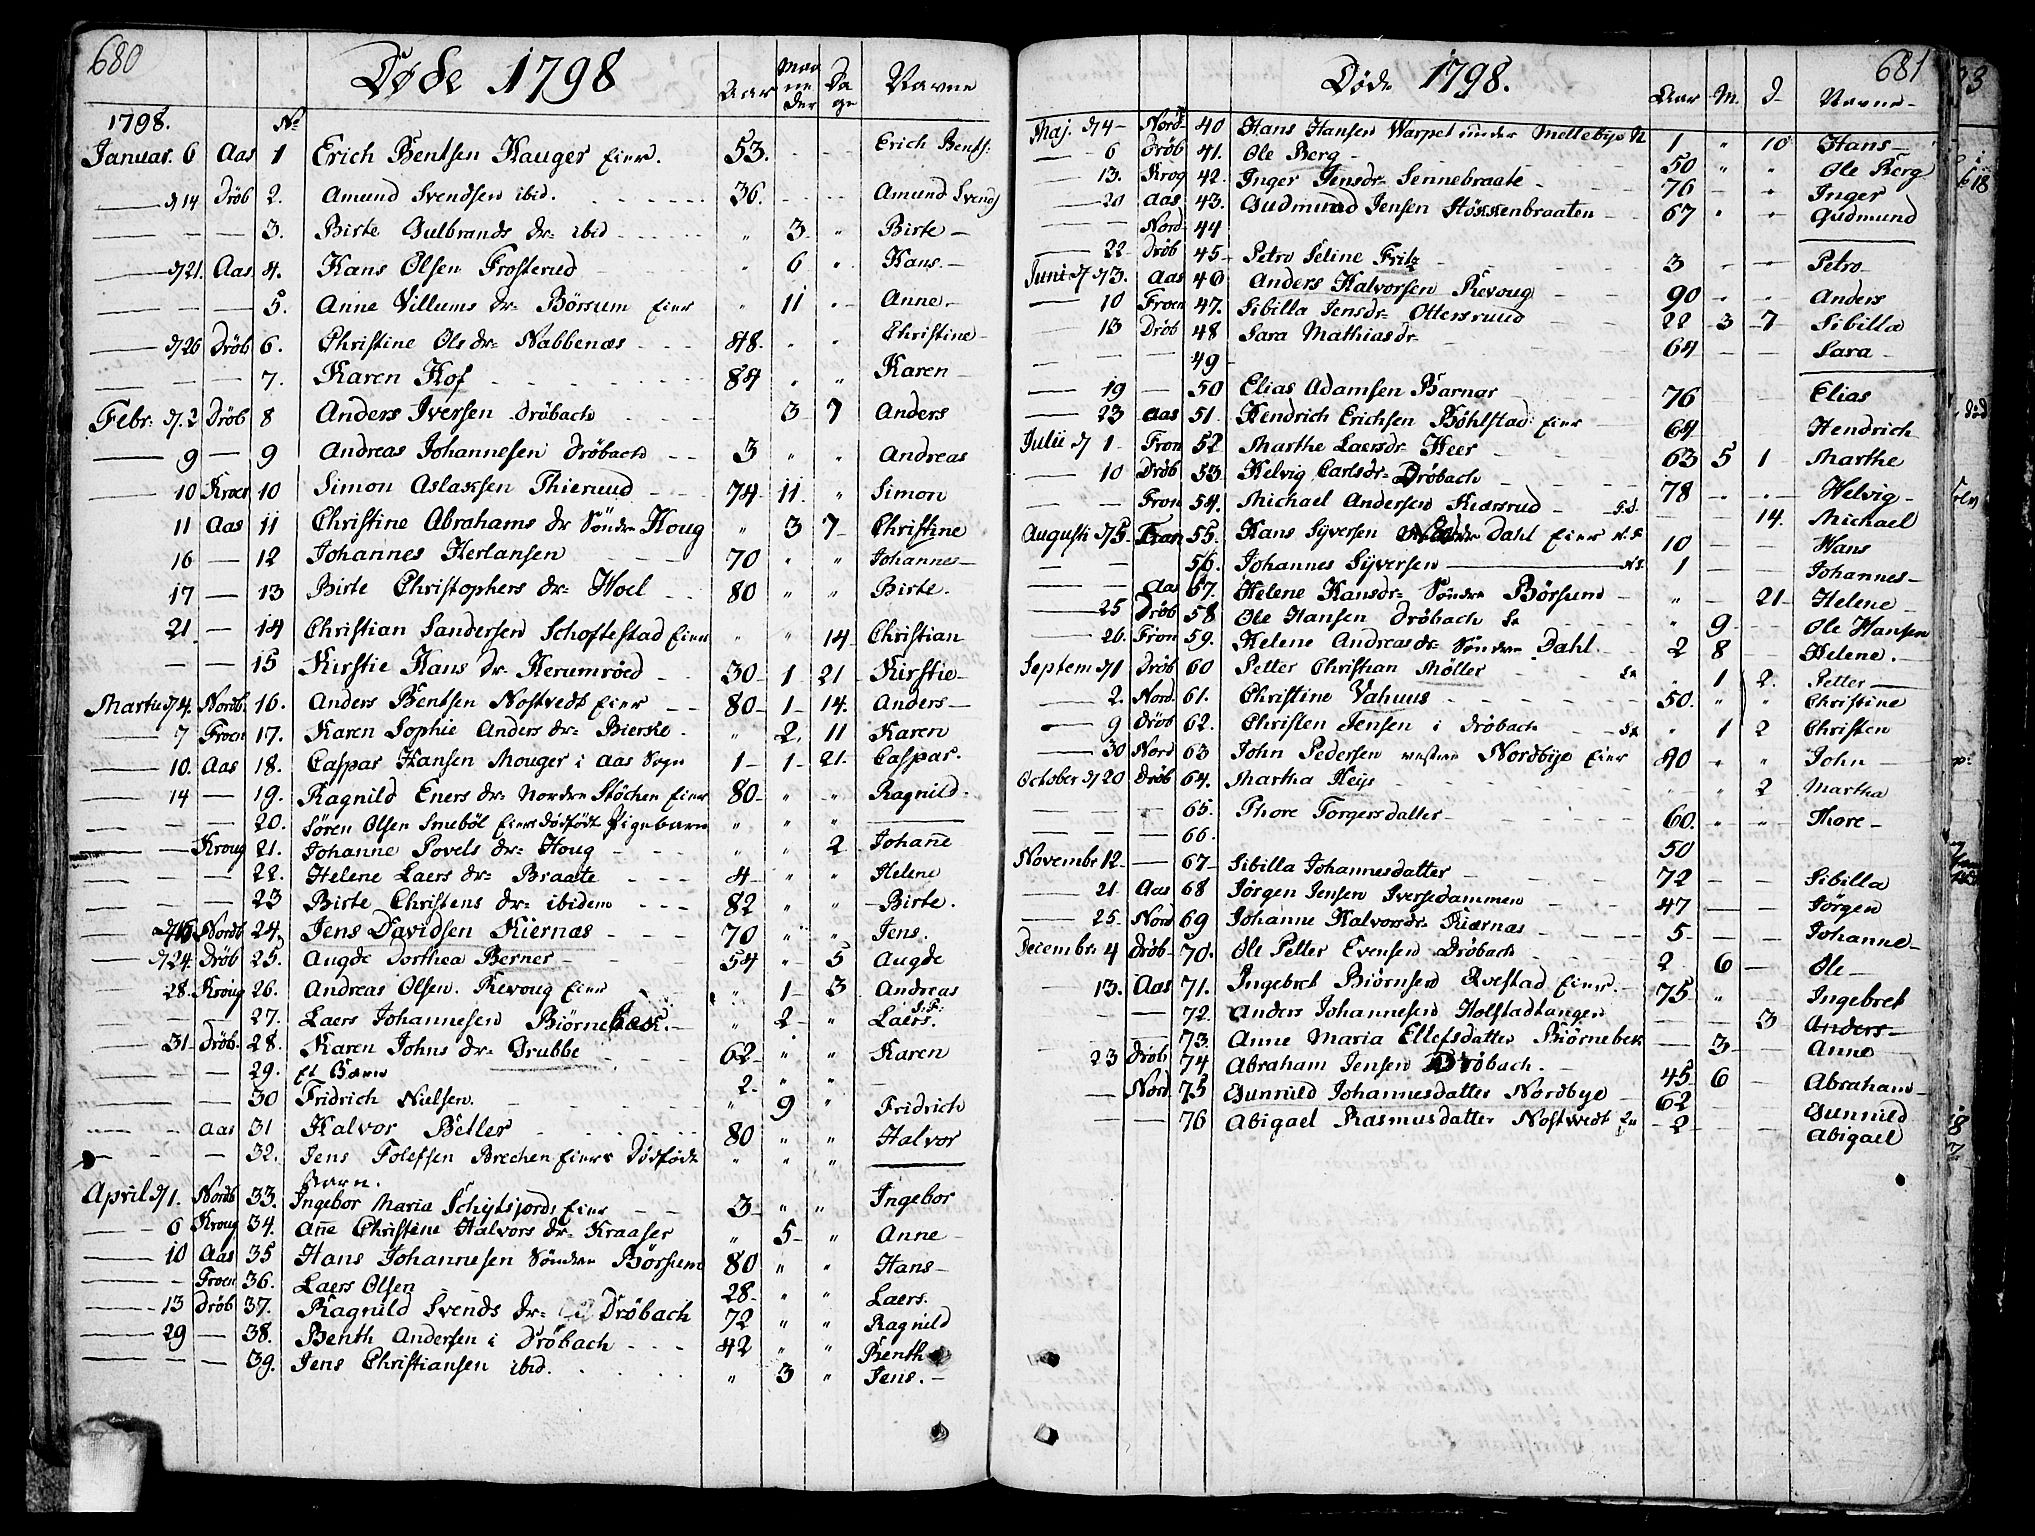 680
Døde 1798
Aar Maaneder Dage Navne
1798. No
Januar. 6 Aas 1 Erich Bentsen Hauger Eier. 53. Erich Bents:
d 14 Drøb 2. Amund Svendsen ibid. 36. Amund Svends
3. Birte Gulbrands dr ibid " 3 " Birte
d 21. Aas 4. Hans Olsen Frosterud " 6 " Hans
5. Anne Villums dr Børsum Eier " 11 " Anne
d 26 Drøb 6. Christine Ols dr Nabbenæs 48. " " Christine
7. Karen Hof 84 " " Karen
Febr: d. 2 Drøb 8 Anders Iversen Drøbach 3 7 Anders
9 — 9 Andreas Johannesen Drøbach 3 " " Andreas
10 Kroer 10 Simon Aslaksen Thierud 74 11 " Simon
11 Aas 11 Christine Abrahams dr Søndre Houg " 3 7 Christine
16 — 12 Johannes Herlansen 70 " " Johannes
17 — 13 Birte Christophers dr Hoel 80 " " Birte.
21. — 14 Christian Sandersen Schoftestad Eier " " 14 Christian
— — 15 Kirstie Hans dr Herumrøed 30 1 21 Kirstie
Martii d 4. Nordb. 16. Anders Bentsen Nostvedt Eier 80 1 14. Anders
7 Froen 17. Karen Sophie Anders dr Bierske " 2. 11 Karen
10. Aas 18. Caspar Hansen Mouger i Aas Sogn 1 1 21. Caspar.
14 — 19. Ragnild Eners dr Nordre Støchen Eier 80 " " Ragnild
20. Søren Olsen Smebøl Eiers dødfødt Pigebarn " " "
Kroug 21. Johanne Povels dr Houg " " 2 Johane
22. Helene Laers dr Braate 4 " " Helene
23 Birte Christens dr ibidem 82 " " Birte.
Nordb 24. Jens Davidsen Kiernæs 70 " " Jens.
d 24. Drøb 25. Augde Dorthea Berner 54 " 5 Augde
28. Kroug 26. Andreas Olsen. Revoug Eier " 1 3 Andreas
27. Laers Johannesen Biørnebæk. " 2 " Laers.
31 Drøb. 28. Karen Johns dr Grubbe 62 " " Karen
29. Et Barn 2 " "
30 Fridrich Nielsen. " 9 " Fridrich
Aas 31 Halvor Beller 80 " " Halvor
32. Jens Tolefsen Brechen Eiers Dødfødt " " "
Barn.
April d 1. Nordb 33. Ingebor Maria Schytsjord: Eier 3 " " Ingebor
6 Kroug 34. Ane Christine Halvors dr Kraaser " 5 " Anne
10 Aas 35 Hans Johannesen Søndre Børsum 80 " " Hans
Froen 36. Laers Olsen 28 " " Laers.
13 Drøb 37. Ragnild Svends dr Drøbach 72 " " Ragnild
29 — 38. Benth Andersen i Drøbach 42 " " Benth
— — 39. Jens Christiansen ibid. " 3 " Jens.
681
Døde 1798.
Aar M. D Navne
Maj. d 4 Nord 40 Hans Hansen Warpet under Mellebye N 1 " 10 Hans
6 Drøb 41. Ole Berg 50 " " Ole Berg
13. Krog 42. Inger Jensdr Sennebraate 76 " Inger
20 Aas 43. Gudmund Jensen Støkkenbraaten 67 " " Gudmund
Nord 44
22 Drøb 45 Petro Seline Fritz 3 Petro
Juni d 3. Aas 46 Anders Halvorsen Revoug 90 " " Anders
10 Froen 47. Sibilla Jensdr Ottersruud 22 3 7 Sibilla
13 Drøb 48 Sara Mathiasdr 64 Sara
49
19 — 50 Elias Adamsen Barnar 76 Elias
23 Aas 51. Hendrich Erichsen Bøhlstad Eier 64 Hendrich
Julii d 1 Fron 52 Marthe Laersdr Heer 63 5 1 Marthe
10 Drøb 53. Helvig Carlsdr Drøbach 78 " " Helvig
Fron 54. Michael Andersen Kiærsrud 14. Michael
Augusti d 5 Fron 55. Hans Syversen Dahl Eier 10 Hans
56. Johannes Syversen 1 Johannes
Aas 57. Helene Hansdr Søndre Børsum " 21 Helene
25 Drøb 58 Ole Hansen Drøbach " 9 Ole Hansen
26. Fron 59. Helene Andreasdr Søndre Dahl. 2 8 Helene.
Septem d 1 Drøb 60 Petter Christian Møller " 1 2. Petter
2. Nord. 61. Christine Vahuus 50. " " Christine
9 Drøb 62. Christen Jensen i Drøbach " 1 2 Christen
30 Nord 63 John Pedersen vestre Nordbye Eier 40 " " John
October d 20 Drøb 64. Martha Heys " 2 Martha
65. Thore Torgersdatter 60. " " Thore
66. 50
Novembr 12 — 67 Sibilla Johannesdatter 72 Sibilla
21 Aas 68 Jørgen Jensen Iversdammen 47 Jørgen
25. Nord 69 Johanne Halvorsdr Kiærnæs 5 Johanne
Decembr. 4 Drøb 70. Ole Petter Evensen Drøbach 2 6 Ole
13. Aas 71. Ingebret Biørnsen Qvestad Eier. 75 " Ingebret
72. Anders Johannesen Holstadtangen 3 Anders
73. Anne Maria Ellefsdatter Biørnebek 3 Anne
23 Drøb 74 Abraham Jensen Drøbach. 45 6 Abraham
Nord 75 Gunnild Johannesdatter Nordbye 62 Gunnild
76 Abigael Rasmusdatter Nostwedt 2 Abigael